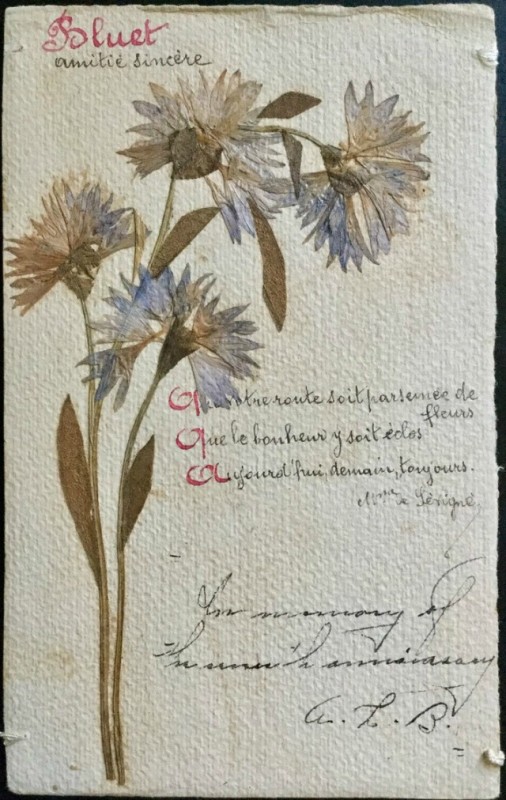 Bluet
amitié sincère
Que votre route soit parsemée de
fleurs
Que le bonheur y soit éclos
Aujourd'hui, demain, toujours.
Mme de Sévigné
In memory of
the anniversary
A. L. B.